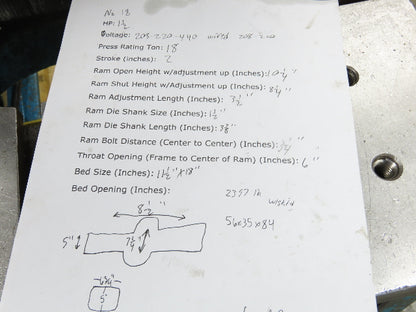 No. 18
HP: 1 1/2
Voltage: 208 220-440 wired 208
Press Rating Ton: 18
Stroke (inches): 2
Ram Open Height w/adjustment up (Inches): 10 1/4"
Ram Shut Height w/Adjustment up (Inches): 8 1/4"
Ram Adjustment Length (Inches): 2 1/2"
Ram Die Shank Size (Inches): 1 1/2"
Ram Die Shank Length (Inches): 3 3/8"
Ram Bolt Distance (Center to Center) (Inches):
Throat Opening (Frame to Center of Ram) (Inches): 6"
Bed Size (Inches): 11 1/2" x 18"
Bed Opening (Inches):
2357 lb
w/skid
8 1/2"
56x35x84
5"
7 3/4"
5"